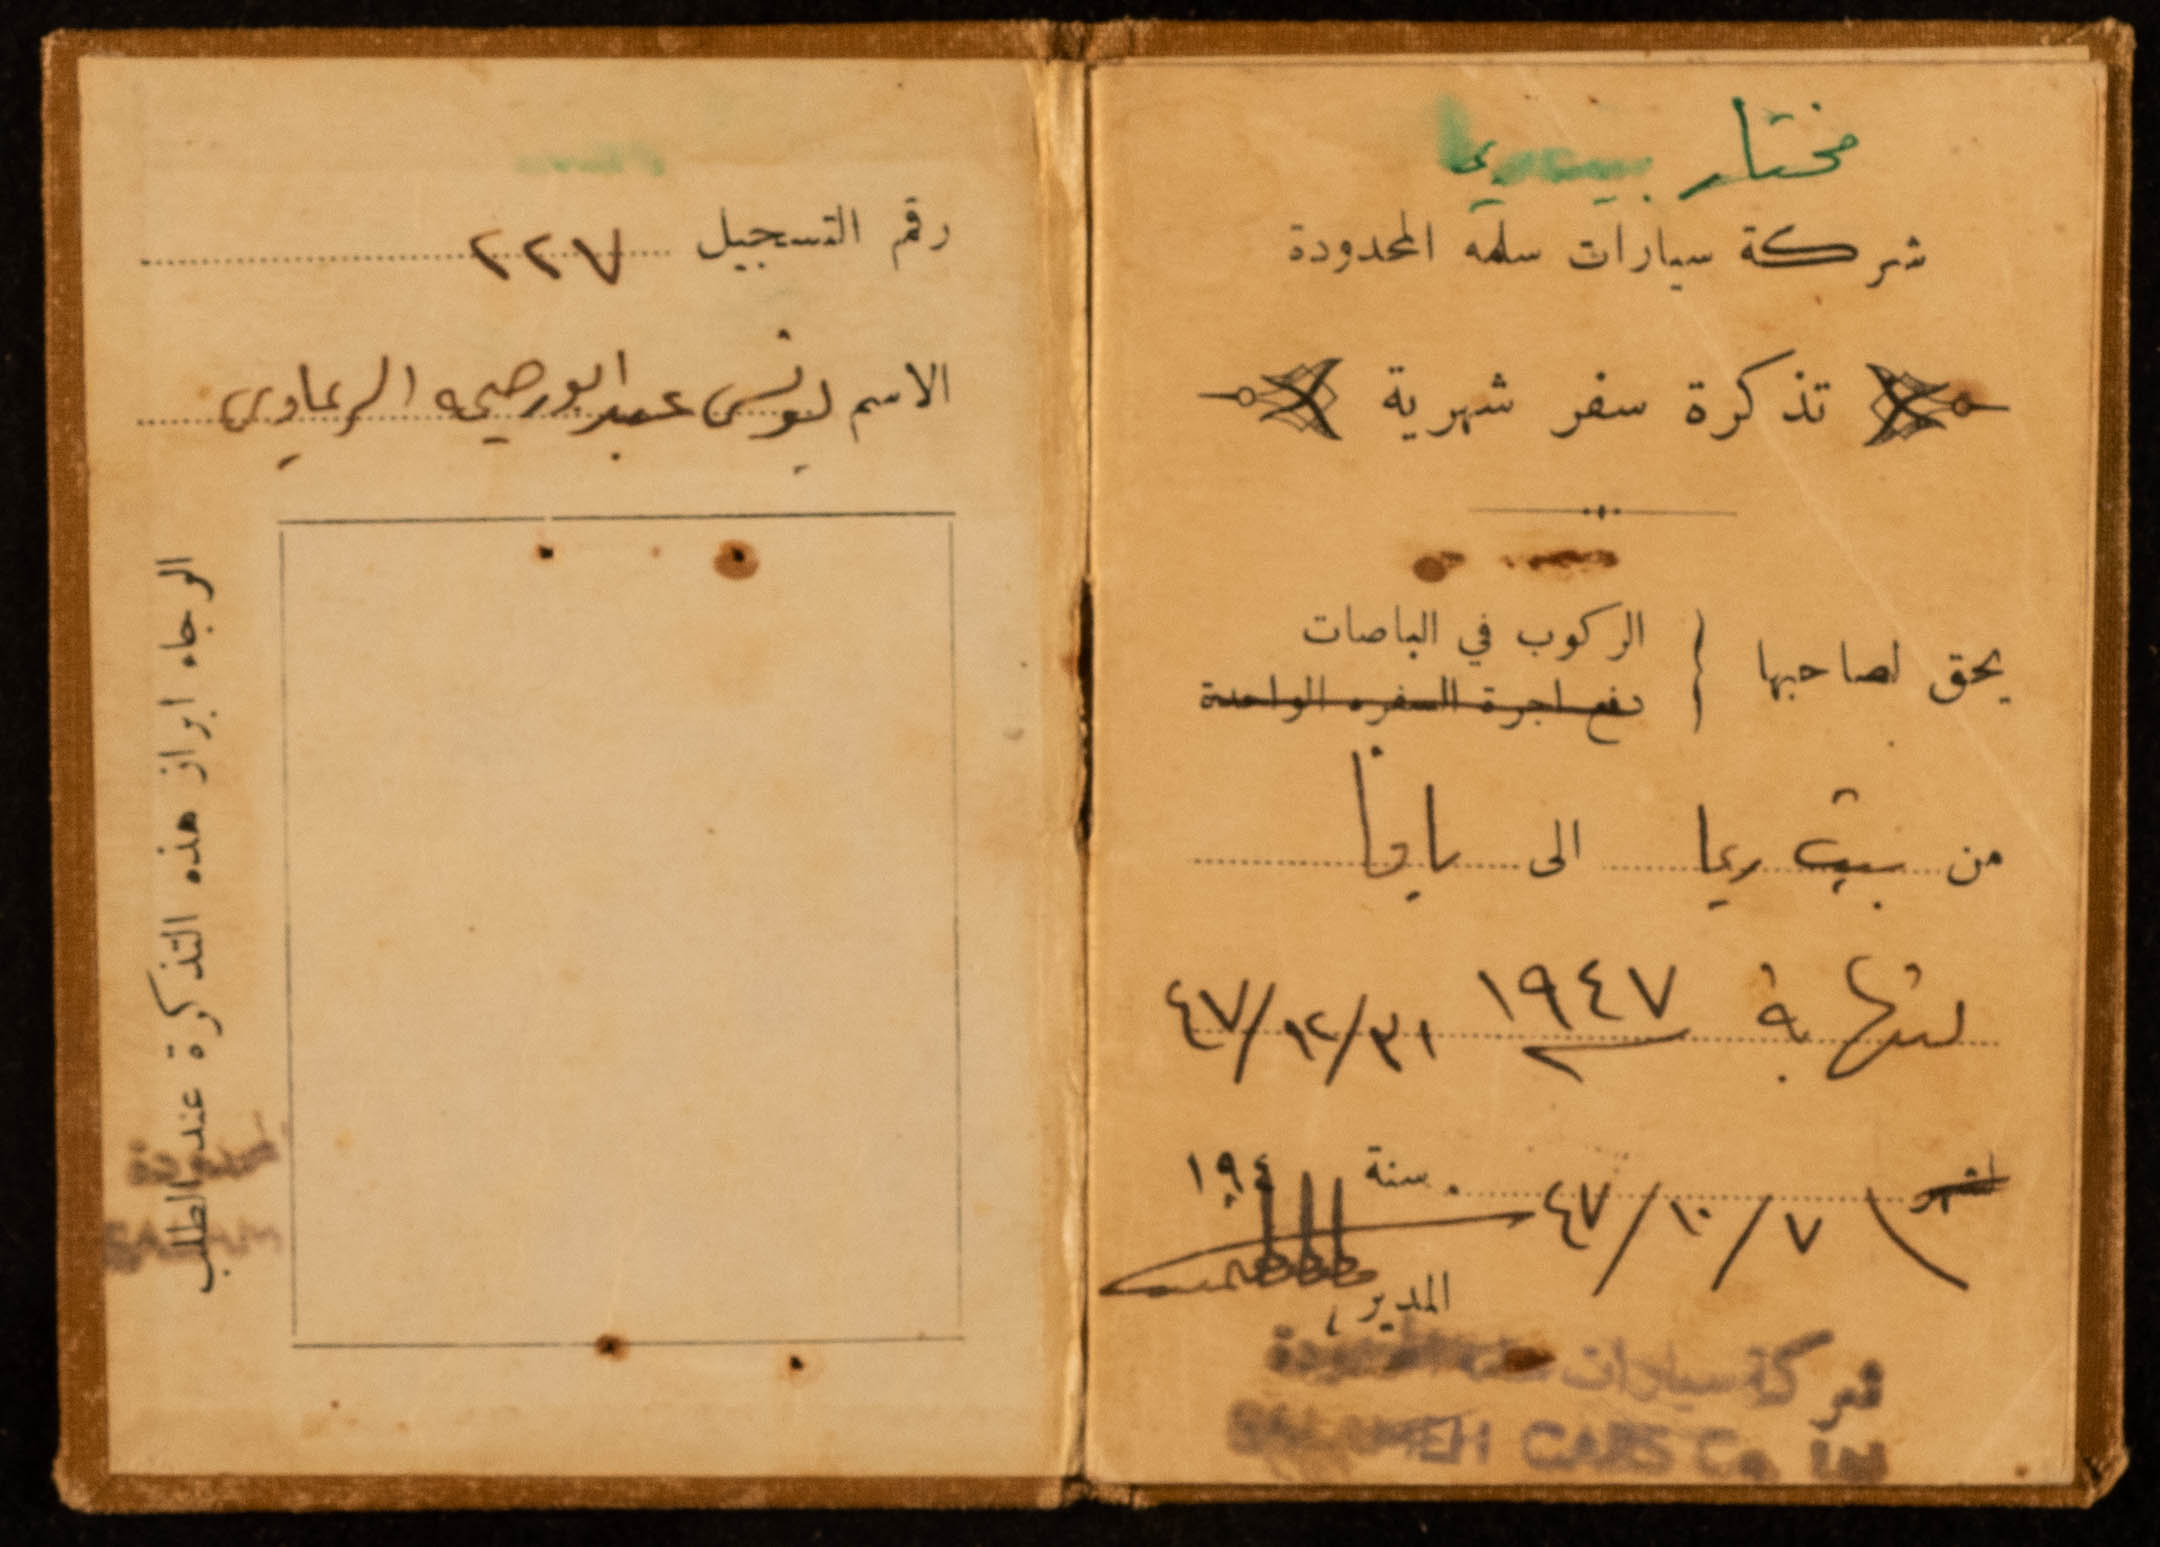 مختار بيت ريما
شركة سيارات سلمه المحدودة
تذكرة سفر شهرية
يحق لصاحبها
الركوب في الباصات
دفع اجرة السفره الواحدة
من بيت ريما الى يافا
لنهاية ١٩٤٧ ٤٧/١٢/٣١
لشهر ٤٧/١٠/٧ سنة ١٩٤
المدير
شركة سيارات سلمه المحدودة
SALAMEH CARS Co. Ltd
رقم التسجيل ٢٢٧
الاسم يونس عبد الريماوي
الرجاء ابراز هذه التذكرة عند الطلب